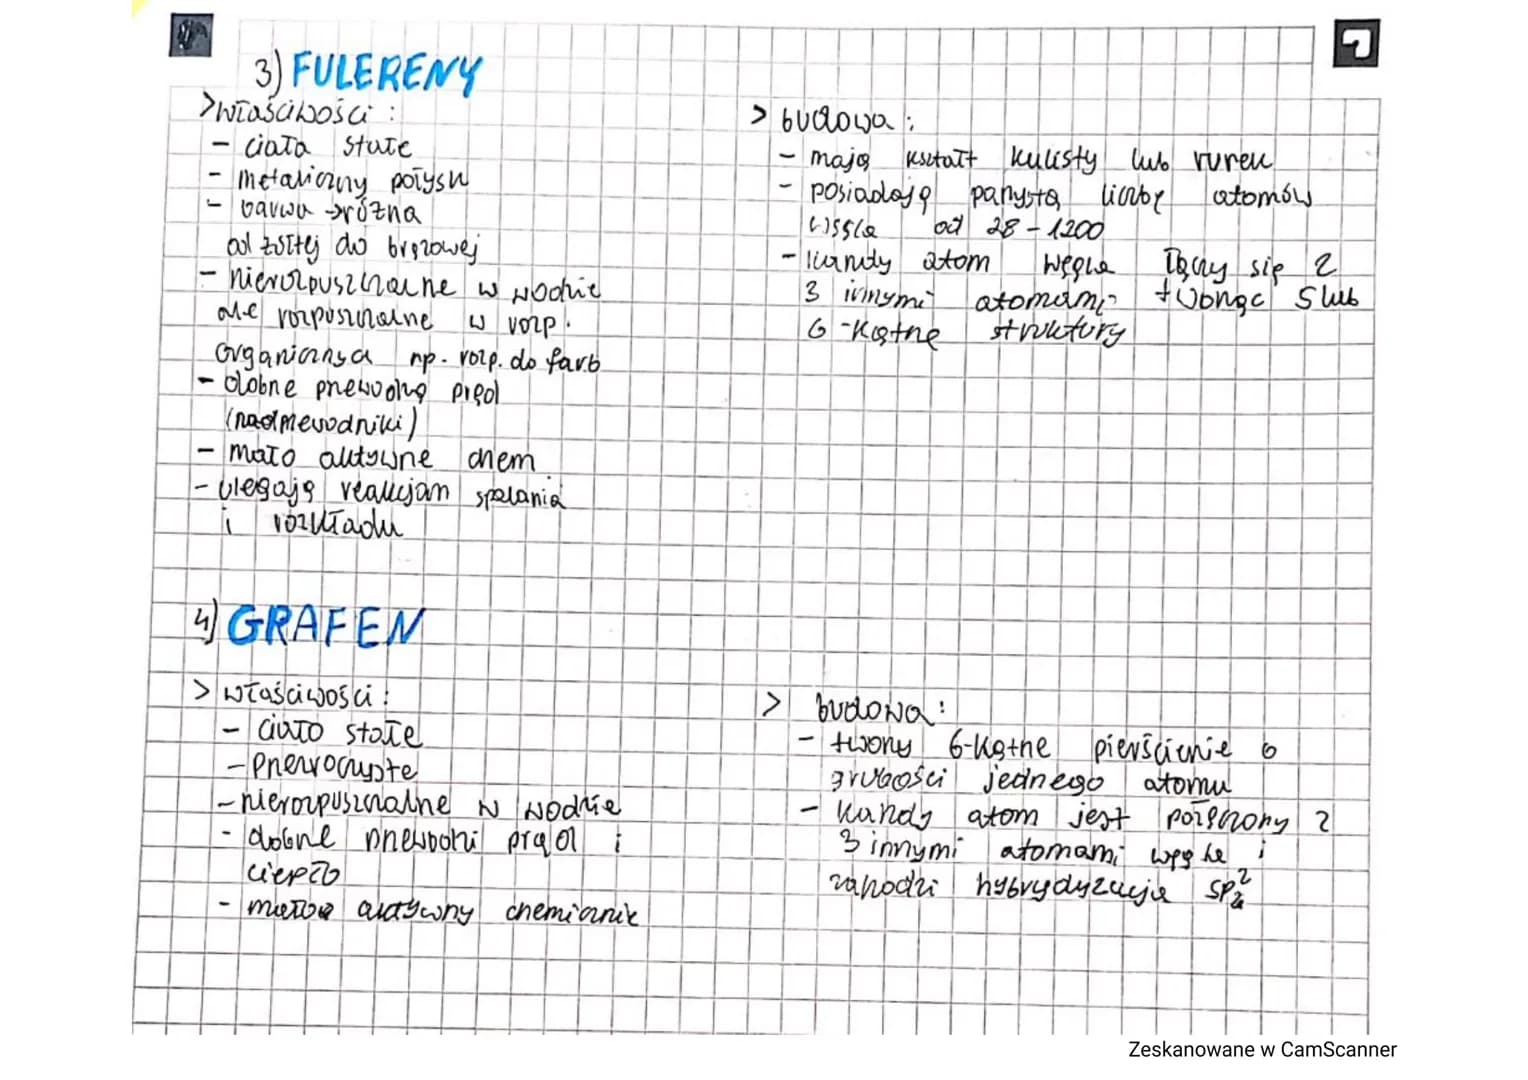 3) FULERENY
> właściwości :
- ciała stałe
- metaliczny połysk
- barwa → różna
od żółtej do brązowej
- nierozpuszczalne w wodzie
ale rozpuszczalne w rozp.
organicznych np. rozp. do farb
- dobrze przewodzą prąd
(nadprzewodniki)
- mało aktywne chem
- ulegają reakcjom spalania
i rozkładu
> budowa :
- mają kształt kulisty lub rurek
- posiadają parzystą liczbę atomów
węgla od 28 - 1200
- każdy atom węgla łączy się z
3 innymi atomami tworząc 5 lub
6 -kątne struktury
4) GRAFEN
> właściwości :
- ciało stałe
- przezroczyste
- nierozpuszczalne w wodzie
- dobrze przewodzi prąd i
ciepło
- mało aktywny chemicznie
> budowa :
- tworzy 6-kątne pierścienie o
grubości jednego atomu
- każdy atom jest połączony z
3 innymi atomami węgla i
zachodzi hybrydyzacja sp²
Zeskanowane w CamScanner